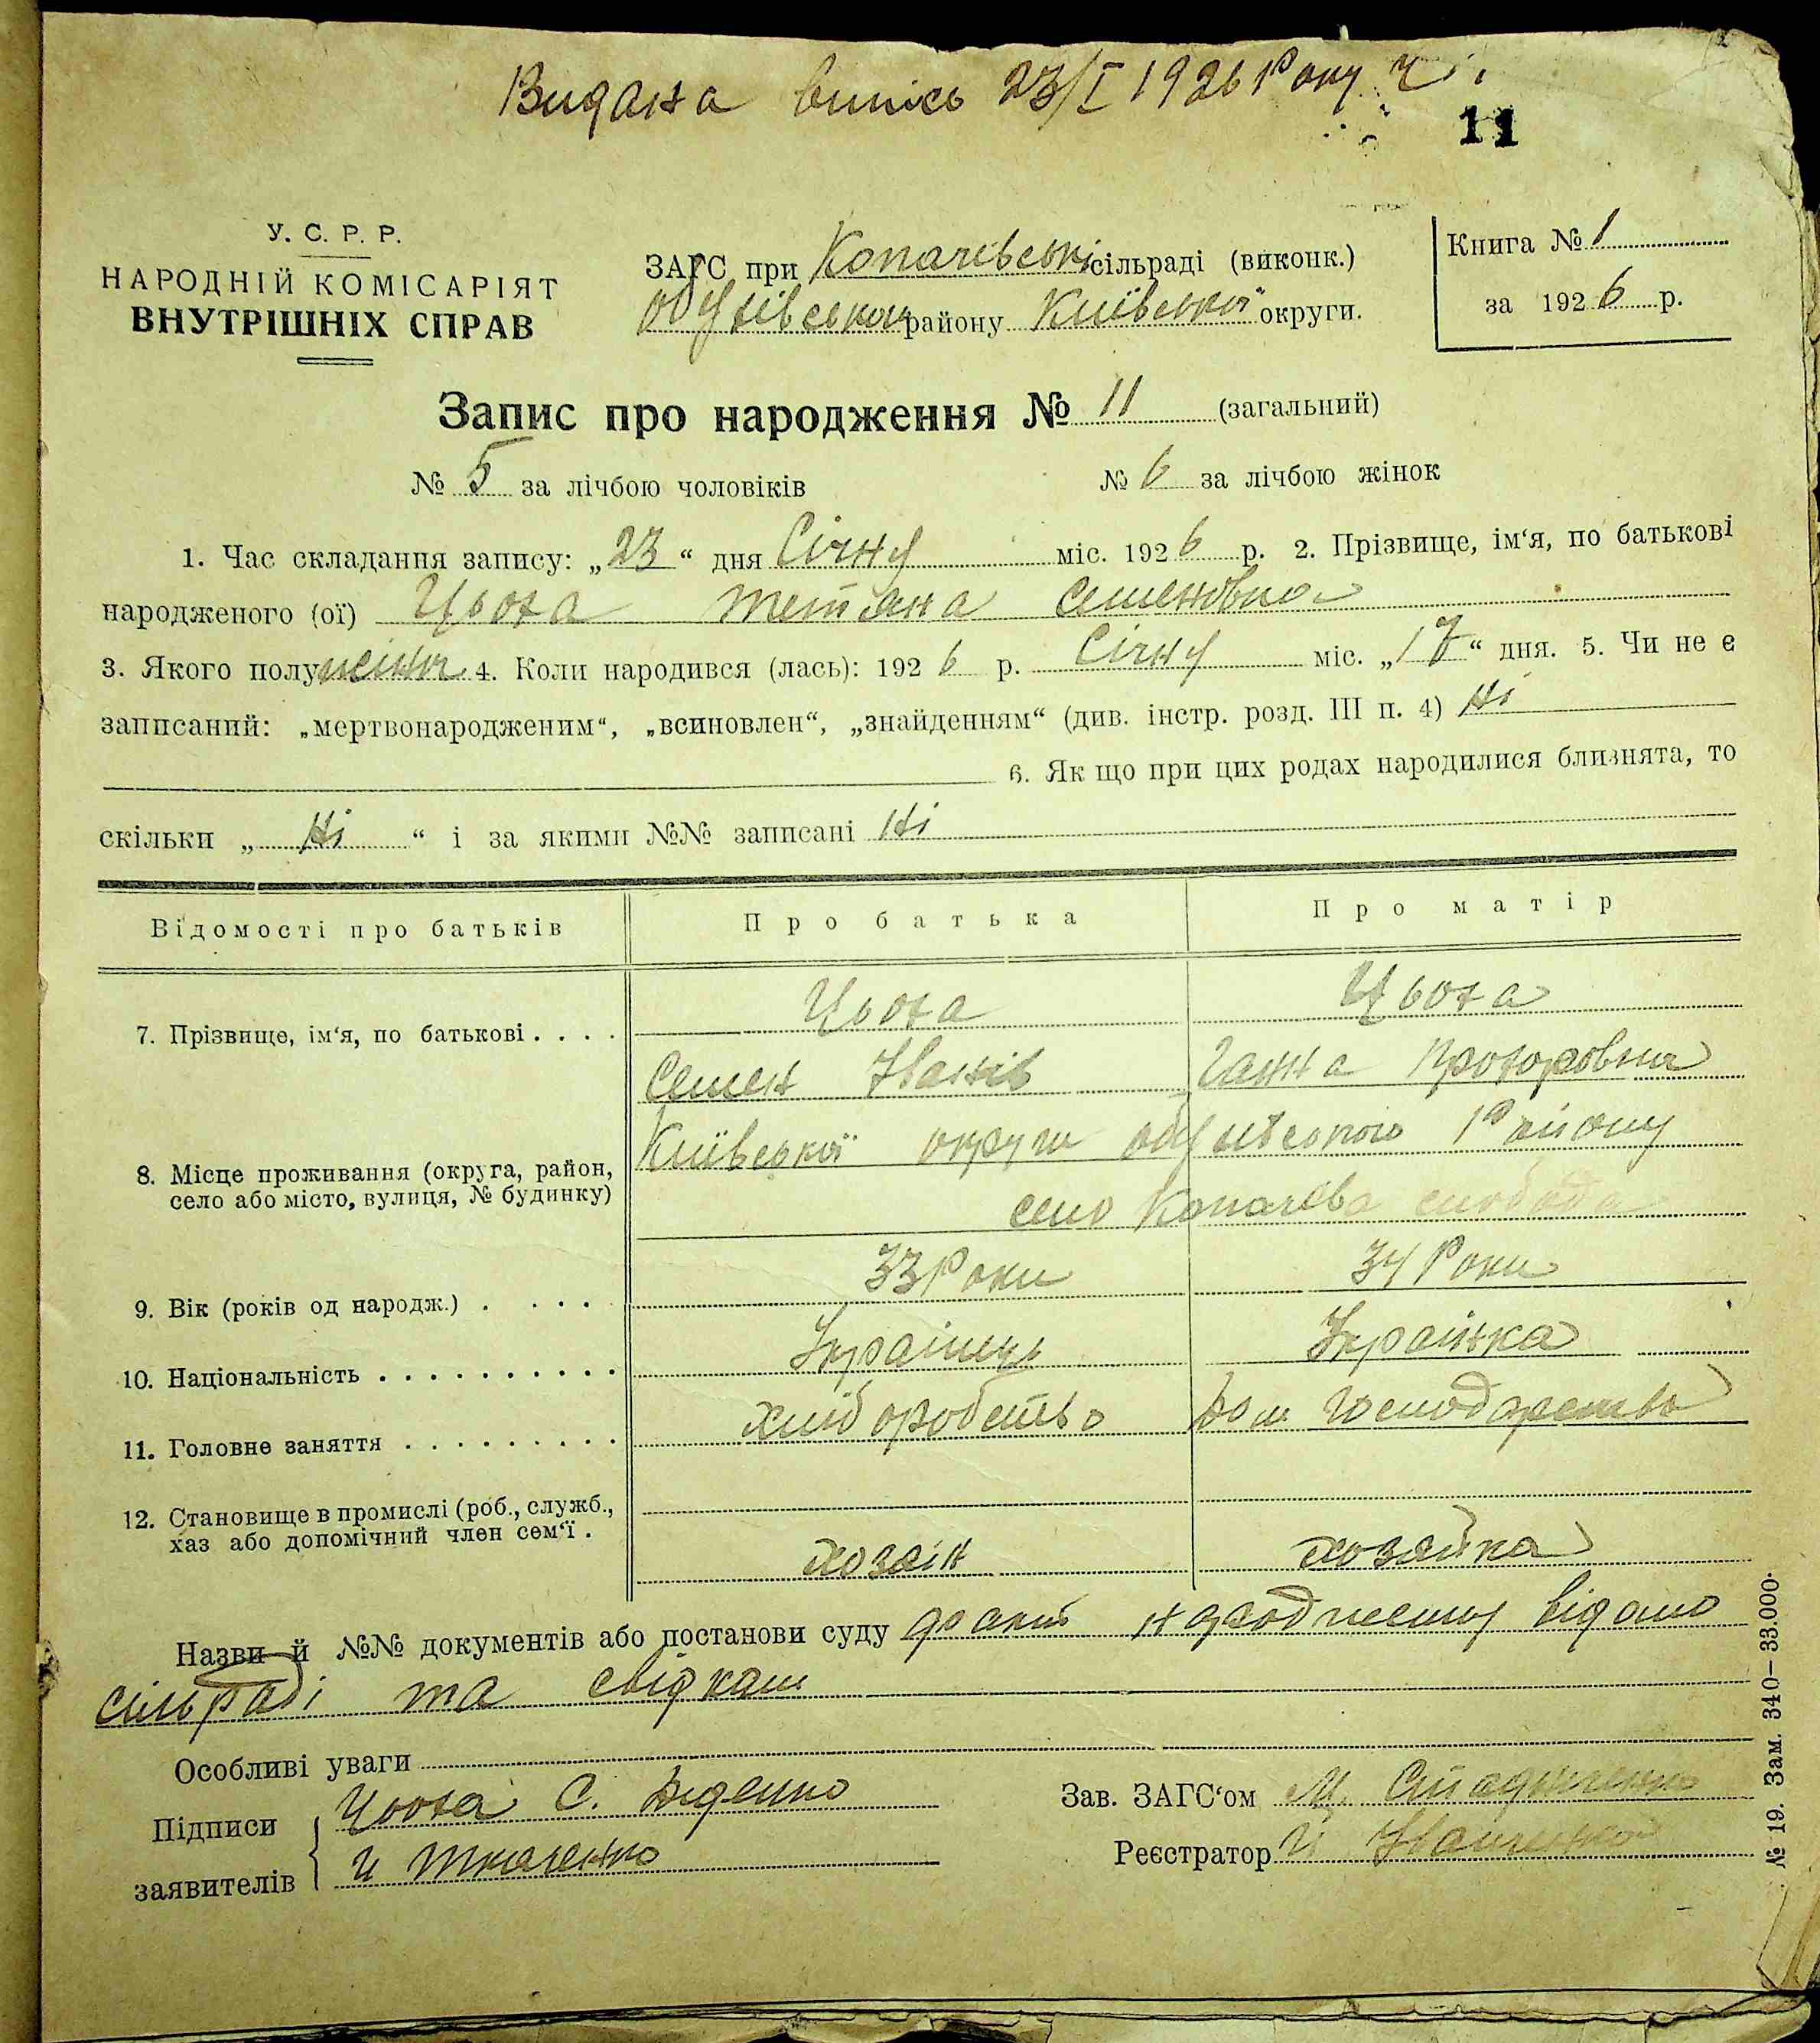 Видана випись 23/I 1926 Року ч 1
11
У. С. Р. Р.
НАРОДНІЙ КОМІСАРІЯТ
ВНУТРІШНІХ СПРАВ
ЗАГС при Копачівські сільраді (виконк.)
Обухівського району Київської округи.
Книга № 1
за 1926 р.
Запис про народження № 11 (загальний)
№ 5 за лічбою чоловіків № 6 за лічбою жінок
1. Час складання запису: „23“ дня Січну міс. 1926 р. 2. Прізвище, ім‘я, по батькові
народженого (ої) Цьоха Тетяна Семеновна
3. Якого полу жіноч. 4. Коли народився (лась): 1926 р. Січну міс. „17“ дня. 5. Чи не є
записаний: „мертвонародженим“, „всиновлен“, „знайденням“ (див. інстр. розд. III п. 4) Ні
6. Як що при цих родах народилися близнята, то
скільки „ Ні “ і за якими №№ записані Ні
Відомості про батьків Про батька Про матір
7. Прізвище, ім‘я, по батькові . . . . Цьоха Цьоха
Семен Іванів Ганна Прохоровна
8. Місце проживання (округа, район, село або місто, вулиця, № будинку) Київської округи Обухівського Району
село Копачева слобода
9. Вік (років од народж.) . . . . 33 Роки 34 Роки
10. Національність . . . . . . . . . . Українець Українка
11. Головне заняття . . . . . . . . . хліборобство Дом господарство
12. Становище в промислі (роб., служб.,
хаз або допомічний член сем‘ї . хозяін хозяйка
Назви й №№ документів або постанови суду факт народження відомо
сільраді та свідкам
Особливі уваги
Підписи Цьоха С. Діденко
заявителів Ткаченко
Зав. ЗАГС‘ом М.
Реєстратор Іваненко
№ 19. Зам. 340–33.000.